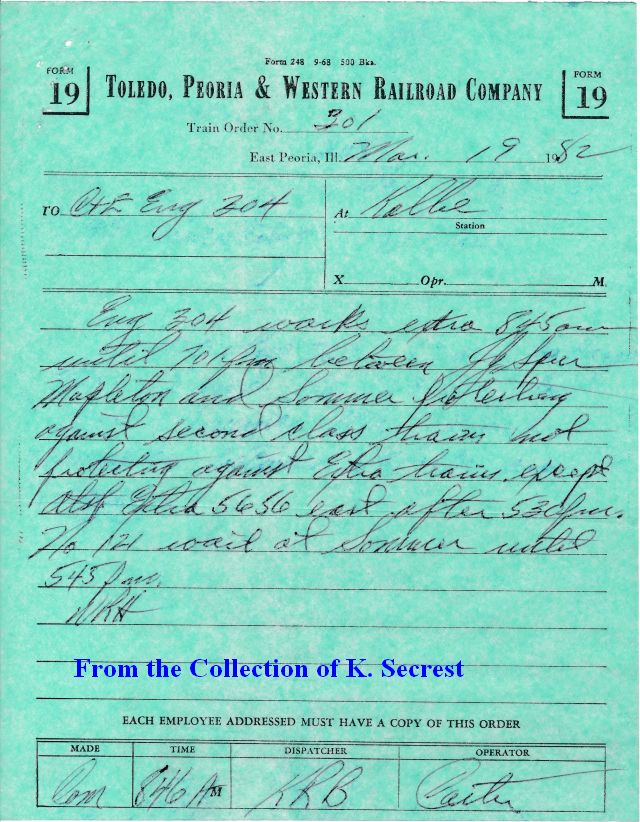 Form 248 9-68 500 Bks.
FORM 19
TOLEDO, PEORIA & WESTERN RAILROAD COMPANY
FORM 19
Train Order No. 201
East Peoria, Ill. Mar. 19 1982
TO C+E Eng 204
At Kolbe
Station
X Opr. M
Eng 204 works extra 845am
until 701pm between Jct Spur
Mapleton and Sommer protecting
against second class trains not
protecting against Extra trains except
ATSF Extra 5656 east after 530pm.
No 121 wait at Sommer until
545pm.
From the Collection of K. Secrest
EACH EMPLOYEE ADDRESSED MUST HAVE A COPY OF THIS ORDER
MADE TIME DISPATCHER OPERATOR
Com 846 AM KRB Carter